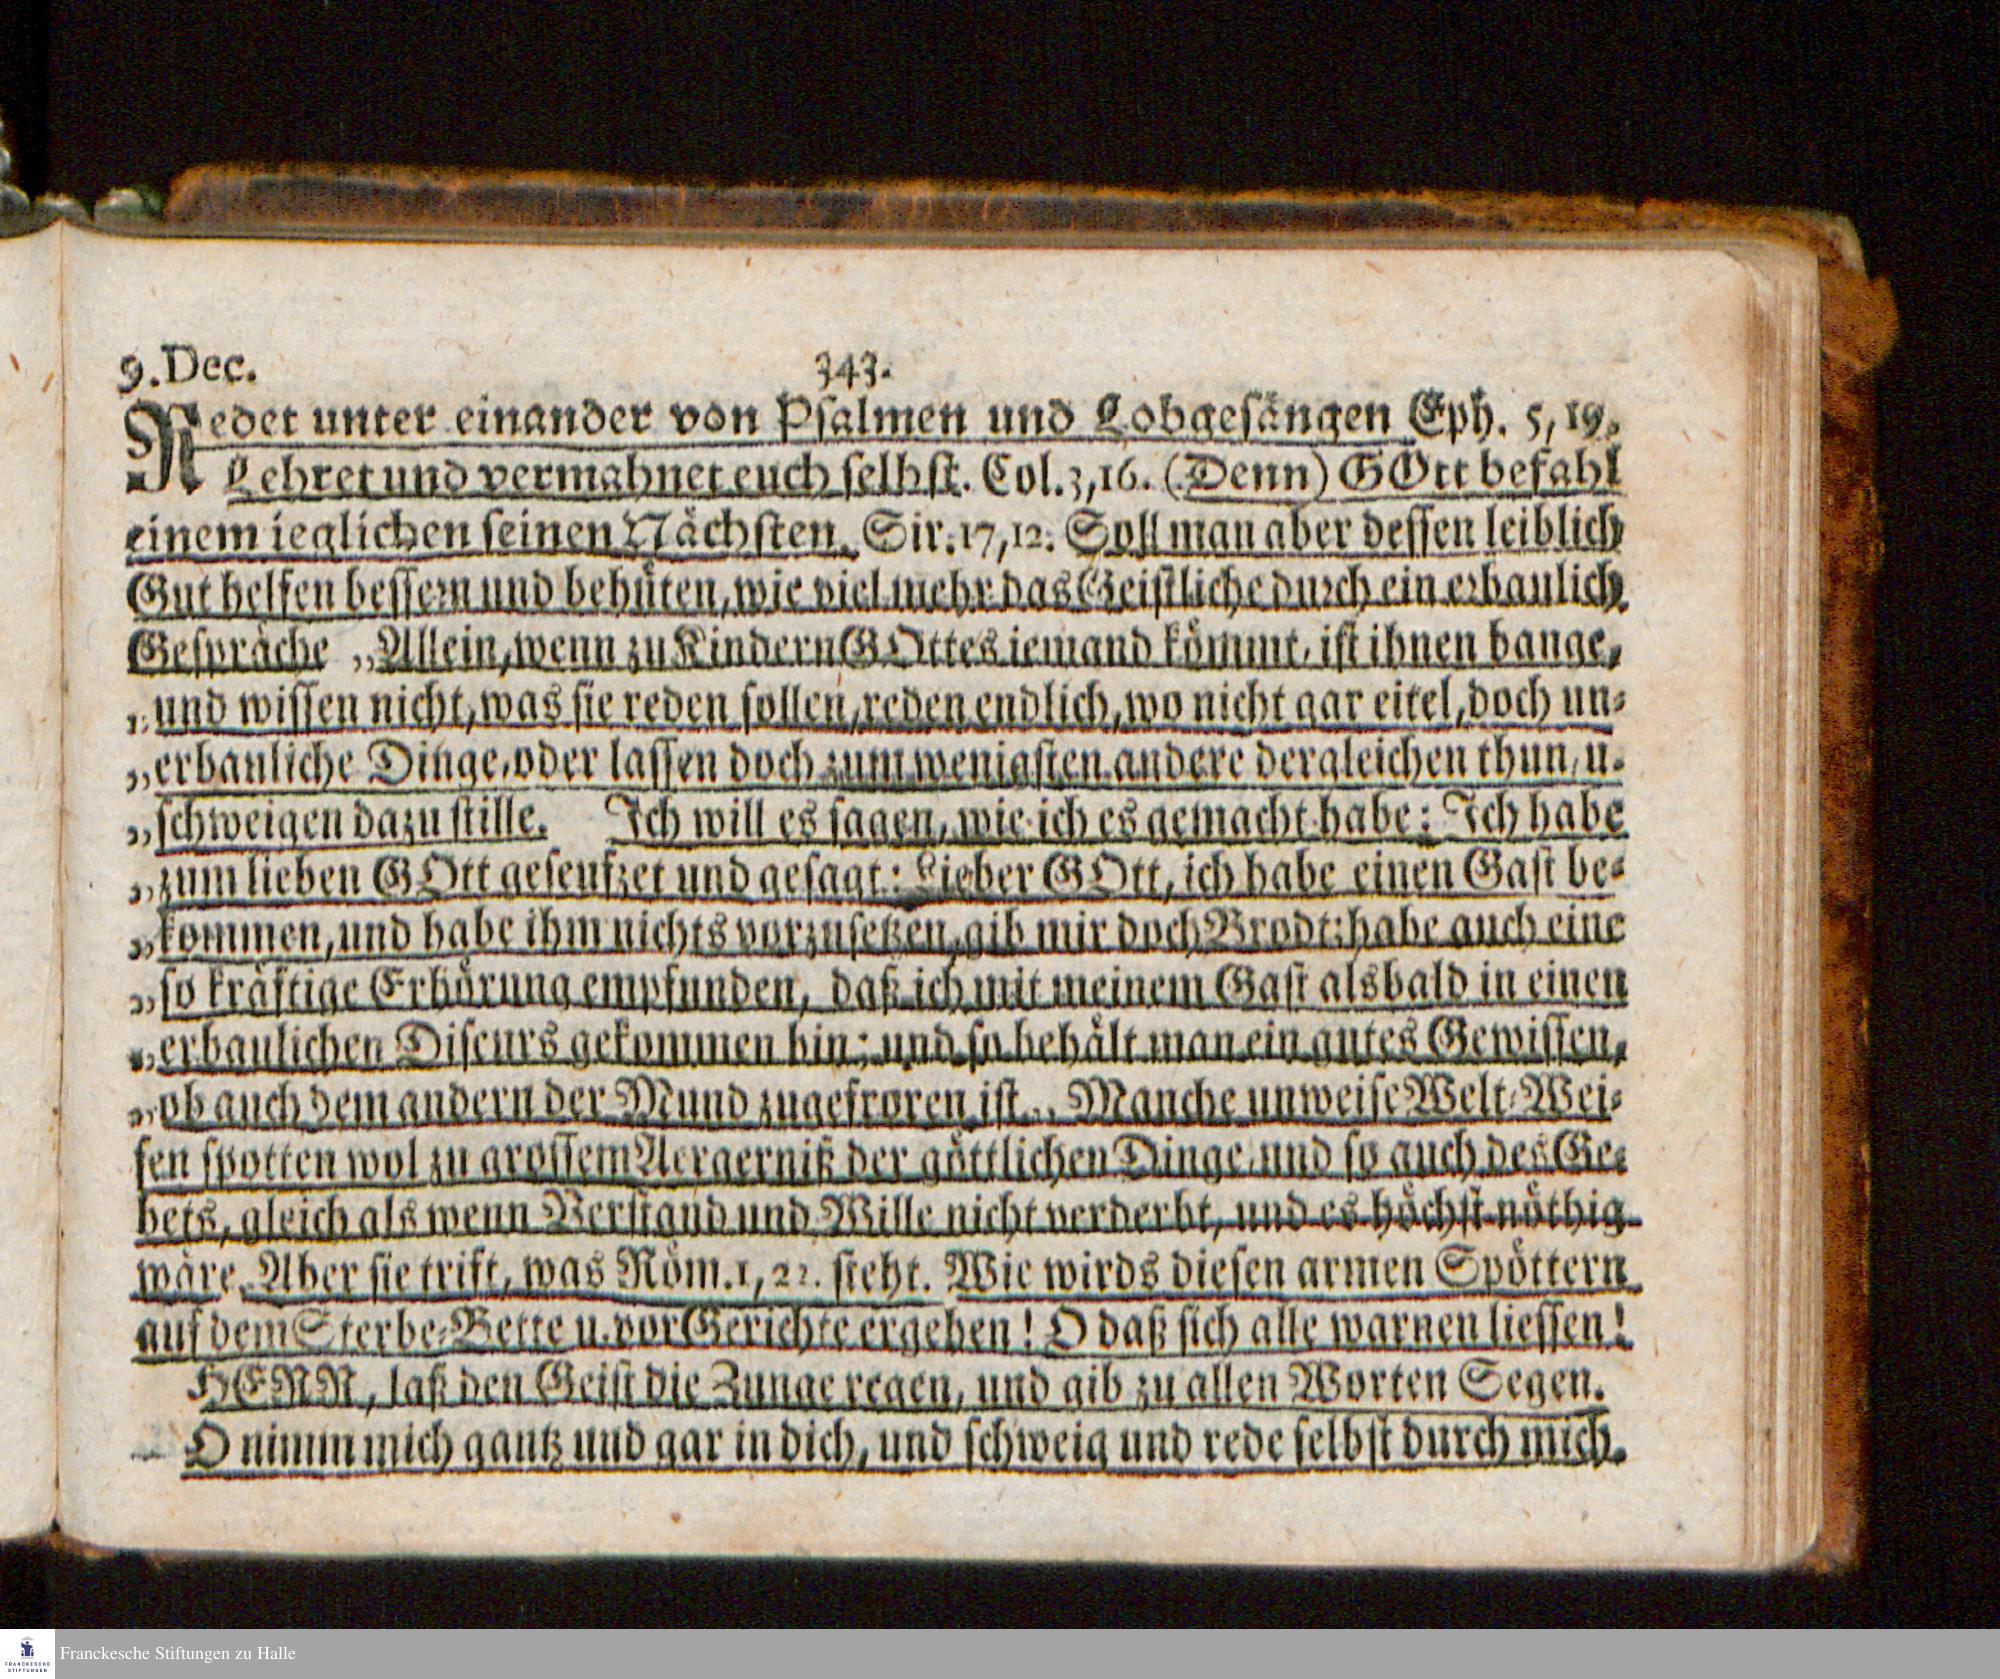 9. Dec. 343.
Redet unter einander von Psalmen und Lobgesängen Eph. 5, 19.
Lehret und vermahnet euch selbst. Col. 3, 16. (Denn) GOtt befahl
einem ieglichen seinen Nächsten. Sir. 17, 12. Soll man aber dessen leiblich
Gut helfen bessern und behüten, wie viel mehr das Geistliche durch ein erbaulich
Gespräche „Allein, wenn zu Kindern GOttes iemand kömmt, ist ihnen bange,
„und wissen nicht, was sie reden sollen, reden endlich, wo nicht gar eitel, doch un-
„erbauliche Dinge, oder lassen doch zum wenigsten andere dergleichen thun, u.
„schweigen dazu stille. Ich will es sagen, wie ich es gemacht habe: Ich habe
„zum lieben GOtt geseufzet und gesagt: Lieber GOtt, ich habe einen Gast be-
„kommen, und habe ihm nichts vorzusetzen, gib mir doch Brodt: habe auch eine
„so kräftige Erhörung empfunden, daß ich mit meinem Gast alsbald in einen
„erbaulichen Discurs gekommen bin; und so behält man ein gutes Gewissen,
„ob auch dem andern der Mund zugefroren ist.„ Manche unweise Welt-Wei-
sen spotten wol zu grossem Aergerniß der göttlichen Dinge, und so auch des Ge-
bets, gleich als wenn Verstand und Wille nicht verderbt, und es höchst nöthig
wäre. Aber sie trift, was Röm. 1, 22. steht. Wie wirds diesen armen Spöttern
auf dem Sterbe-Bette u. vor Gerichte ergehen! O daß sich alle warnen liessen!
HERR, laß den Geist die Zunge regen, und gib zu allen Worten Segen.
O nimm mich gantz und gar in dich, und schweig und rede selbst durch mich.
FRANCKESCHE
STIFTUNGEN
Franckesche Stiftungen zu Halle